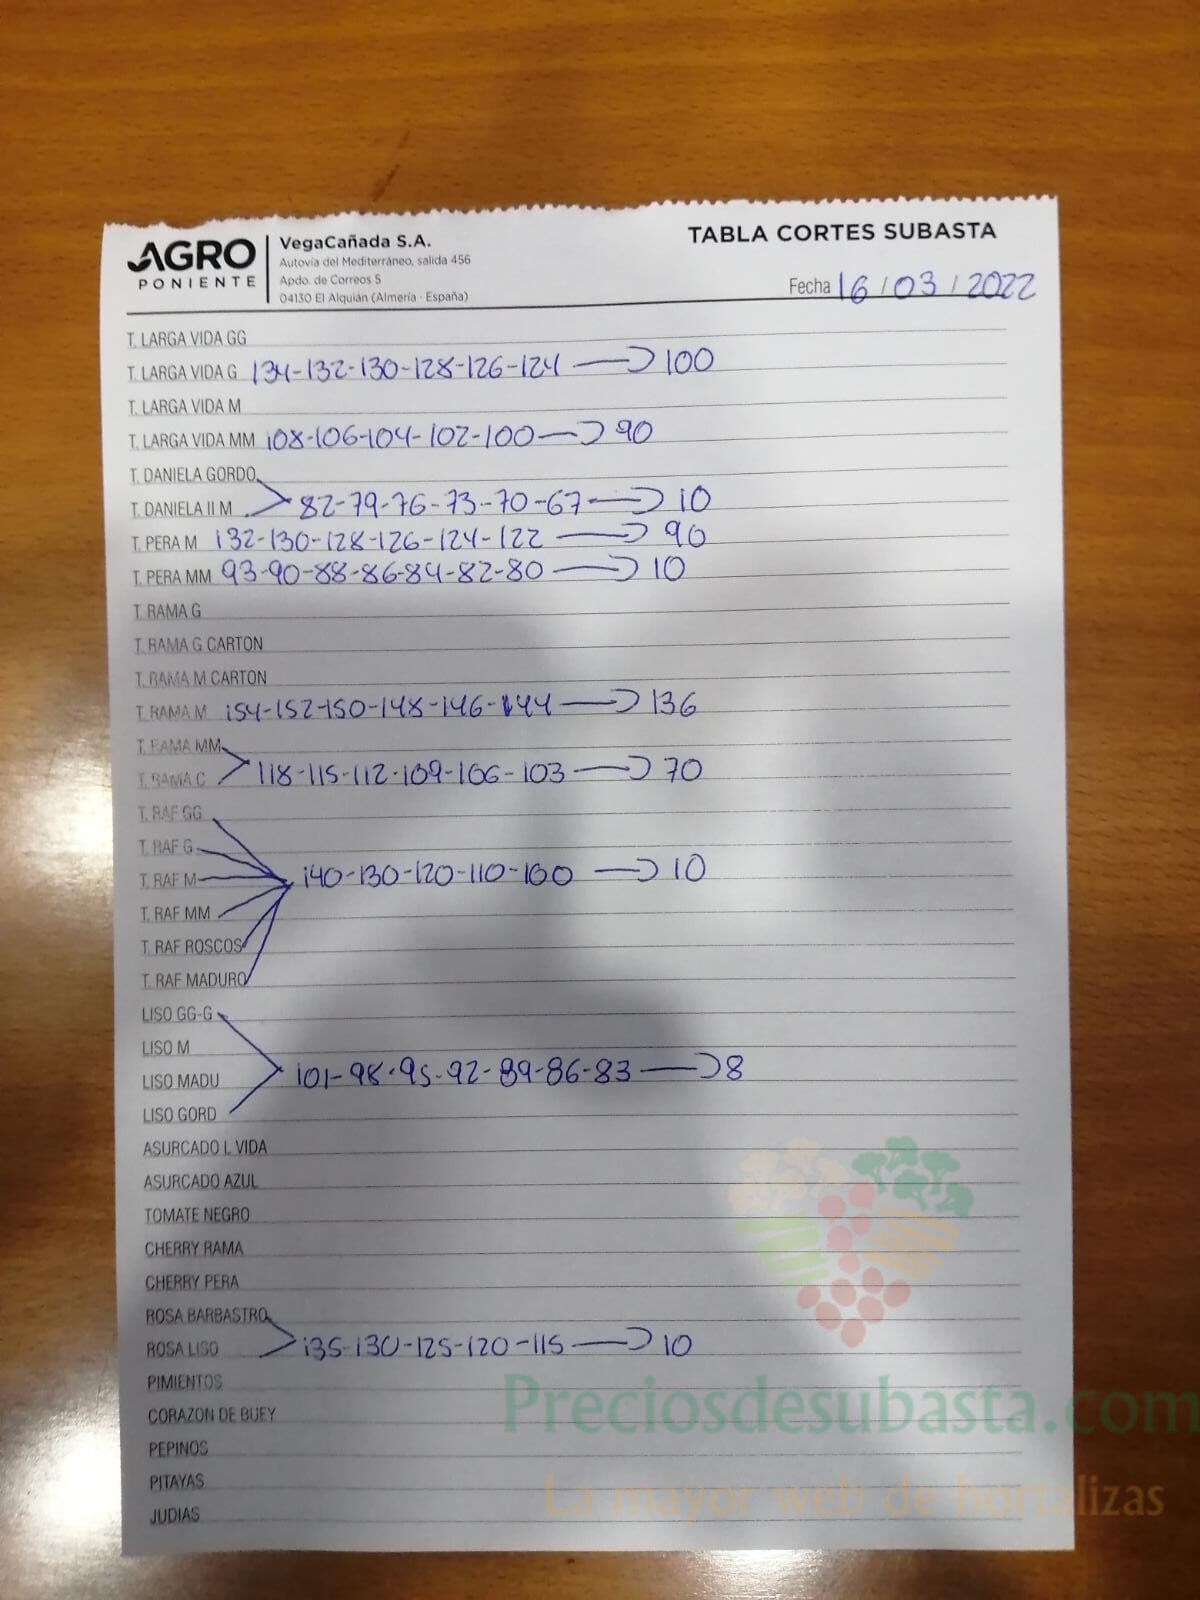 AGRO
PONIENTE
VegaCañada S.A.
Autovía del Mediterráneo, salida 456
Apdo. de Correos 5
04130 El Alquián (Almería - España)
TABLA CORTES SUBASTA
Fecha 16 / 03 / 2022
T. LARGA VIDA GG
T. LARGA VIDA G 134-132-130-128-126-124 → 100
T. LARGA VIDA M
T. LARGA VIDA MM 108-106-104-102-100 → 90
T. DANIELA GORDO
T. DANIELA II M 82-79-76-73-70-67 → 10
T. PERA M 132-130-128-126-124-122 → 90
T. PERA MM 93-90-88-86-84-82-80 → 10
T. RAMA G
T. RAMA G CARTON
T. RAMA M CARTON
T. RAMA M 154-152-150-148-146-144 → 136
T. RAMA MM
T. RAMA C 118-115-112-109-106-103 → 70
T. RAF GG
T. RAF G
T. RAF M 140-130-120-110-100 → 10
T. RAF MM
T. RAF ROSCOS
T. RAF MADURO
LISO GG-G
LISO M
LISO MADU 101-98-95-92-89-86-83 → 8
LISO GORD
ASURCADO L VIDA
ASURCADO AZUL
TOMATE NEGRO
CHERRY RAMA
CHERRY PERA
ROSA BARBASTRO
ROSA LISO 135-130-125-120-115 → 10
PIMIENTOS
CORAZON DE BUEY
PEPINOS
PITAYAS
JUDIAS
Preciosdesubasta.com
La mayor web de hortalizas